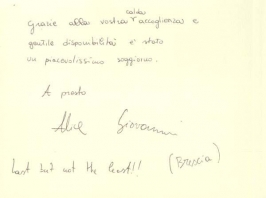 calda
Grazie alla vostra accoglienza e
gentile disponibilità e' stato
un piacevolissimo soggiorno.
A presto
Alice Giovanni
Last but not the least!! (Brescia)